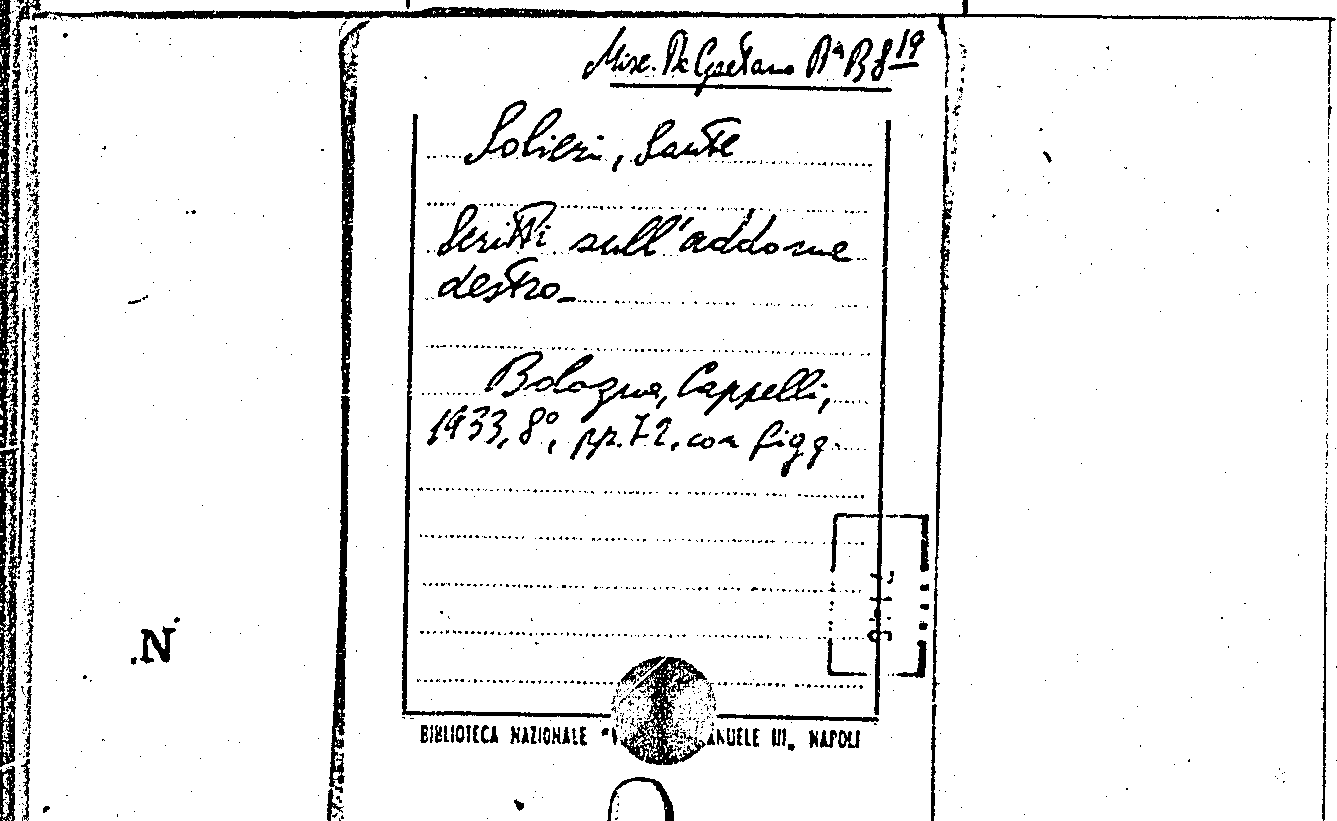 Misc. De Gaetano Bª B 8 19
Solieri, Sante
Scritti sull'addome
destro_
Bologna, Cappelli,
1933, 8°, pp. 72. con figg.
N
BIBLIOTECA NAZIONALE "V ANUELE III„ NAPOLI